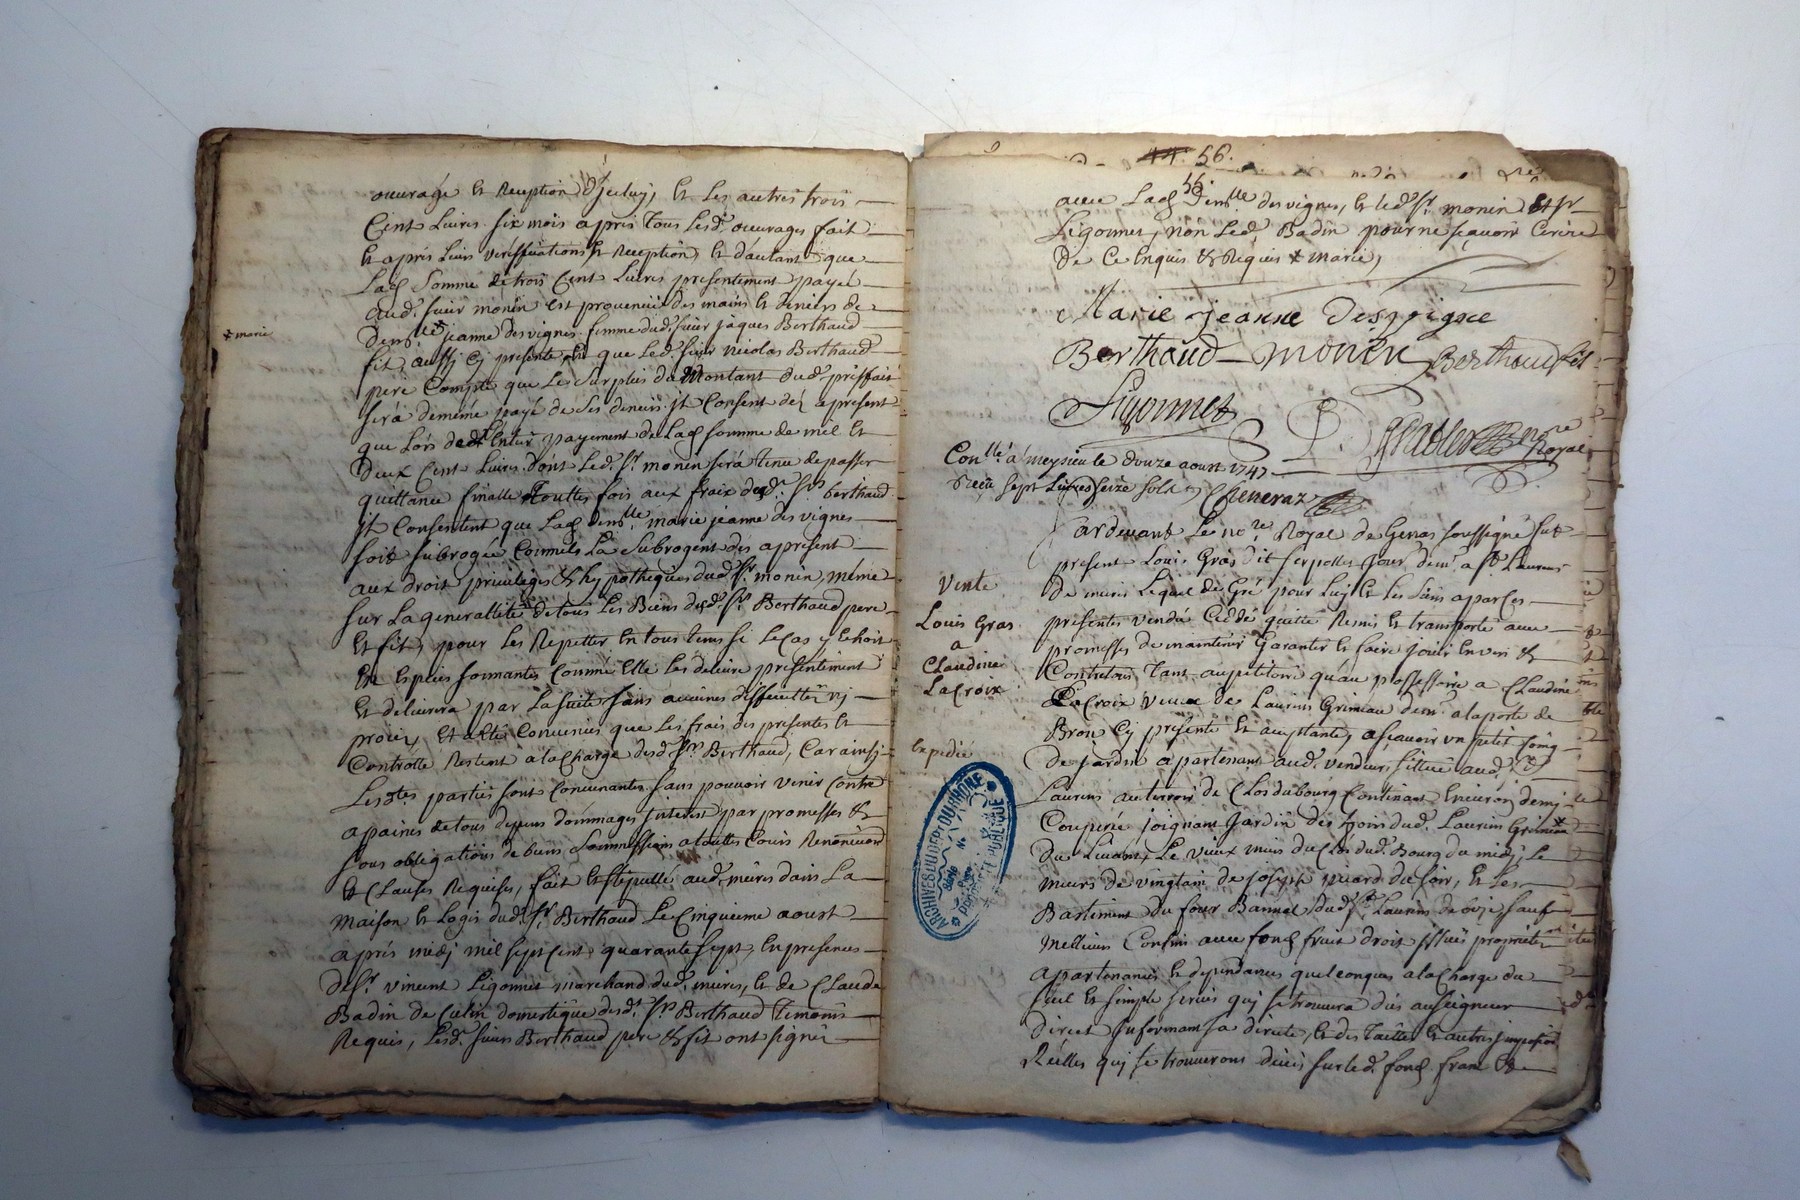 ouvrage et Reception d'jceluy, et Les autres trois
Cents Livres six mois apres tous Lesd. ouvrages fait
et aprés Leurs veriffications et Reception, et d'autant que
Lad. Somme de trois Cent Livres presentement payée
aud. sieur monin est provenüe des mains et deniers de
demlle jeanne des vignes femme dud. sieur jaques Berthaud
* marie
fils aussy cy presente que Led. sieur nicolas Berthaud
pere Compte que Le Surplus du Montant dud. prisfait
sera deméme payé de ses deniers jl Consent dés apresent
que Lors de Lentier payement de Lad. somme de mil et
deux Cent Livres dont Led. Sr. monin sera tenu de passer
quittance finalle touttes fois aux fraix desd. Srs berthaud
jl Consentent que Lad. demlle. marie jeanne des vignes
soit subrogée Comme La Subrogent des apresent
aux droit privileges et hypotheques dud. Sr. monin, méme
sur La generallité de tous Les Biens desd. Srs. Berthaud pere
et fils, pour Les Repetter en tous tems si Le Cas y Echoit
en espeies sonnantes Comme Elle Les delivre presentement
et delivrera par La suite sans aucunes difficultés ny
procés, et a Eté Convenües que Les frais des presentes et
Controlle Restent a la Charge desd. Srs. Berthaud, Car ainsy
Les dtes. parties sont Convenantes sans pouvoir venir Contre
a peines de tous depens dommages jnterest par promesses &
sous obligations de biens Soumissions a toutes Cours Renonciations
et Clauses Requises, fait et stipullé aud. mûres dans La
maison et Logis dud. Sr. Berthaud Le Cinquieme aoust
aprés midy mil sept Cent quarante sept, en presences
de Sr. vincent Ligonnet marchand dud. mûres, et de Claude
Badin de Culin domestique desd. Srs. Berthaud temoins
Requis, Lesd. sieurs Berthaud pere & fils ont signé
44. 56.
56
avec Lad. Demlle des vignes, et led. Sr. monin et Sr
Ligonnet, non Led. Badin pour ne sçavoir Ecrire
de Ce Enquis & Requis * marie,
Marie jeanne Desvigne
Berthaud monin Berthaud fils
Ligonnet
nre Royal
Conllé a meysieu le douze aoust 1747
Receu sept Livres seize sols
Cleneraz
Pardevant Le nore. Royal de Genas soussigné fut
present Louis Gras dit
de mures Lequel de Gré pour Luy et Les Siens a par Ces
Vente
Louis Gras
a
Claudine
LaCroix
presentes vendu Cédé quitté Remis et transporté avec
promesses de maintenir Garantir et faire jouir Envers &
Contre tous Tant au petitoire qu'au possessoire a Claudine
LaCroix veuve de Laurens Grimeau demt. a la porte de
Bron Cy presente et acceptante, asçavoir un petit
expedié
de jardin apartenant aud. vendeur, sittué aud. St
Laurens au terroir de Clos du bourg Contenant Environ demy
Couperée joignant jardin des hoirs dud. Laurens Grimeau
du Levant, Le vieux murs du Clos dud. Bourg du midy, Le
murs de vingtain de joseph du soir, et Les
Bastiment du four Bannal dud. St. Laurens de bize sauf
meilleurs Confins avec fond fruit droit jssües proprietés
apartenances et dependances quelconques a la Charge du
seul et simple servis quj se trouvera dûs au seigneur
direct jnformant sa directe, et des tailles et autres jmposition
Réelles quj se trouverons deües sur led. fond franc &
ARCHIVES DU DEPT DU RHÔNE
PROPRIETE PUBLIQUE